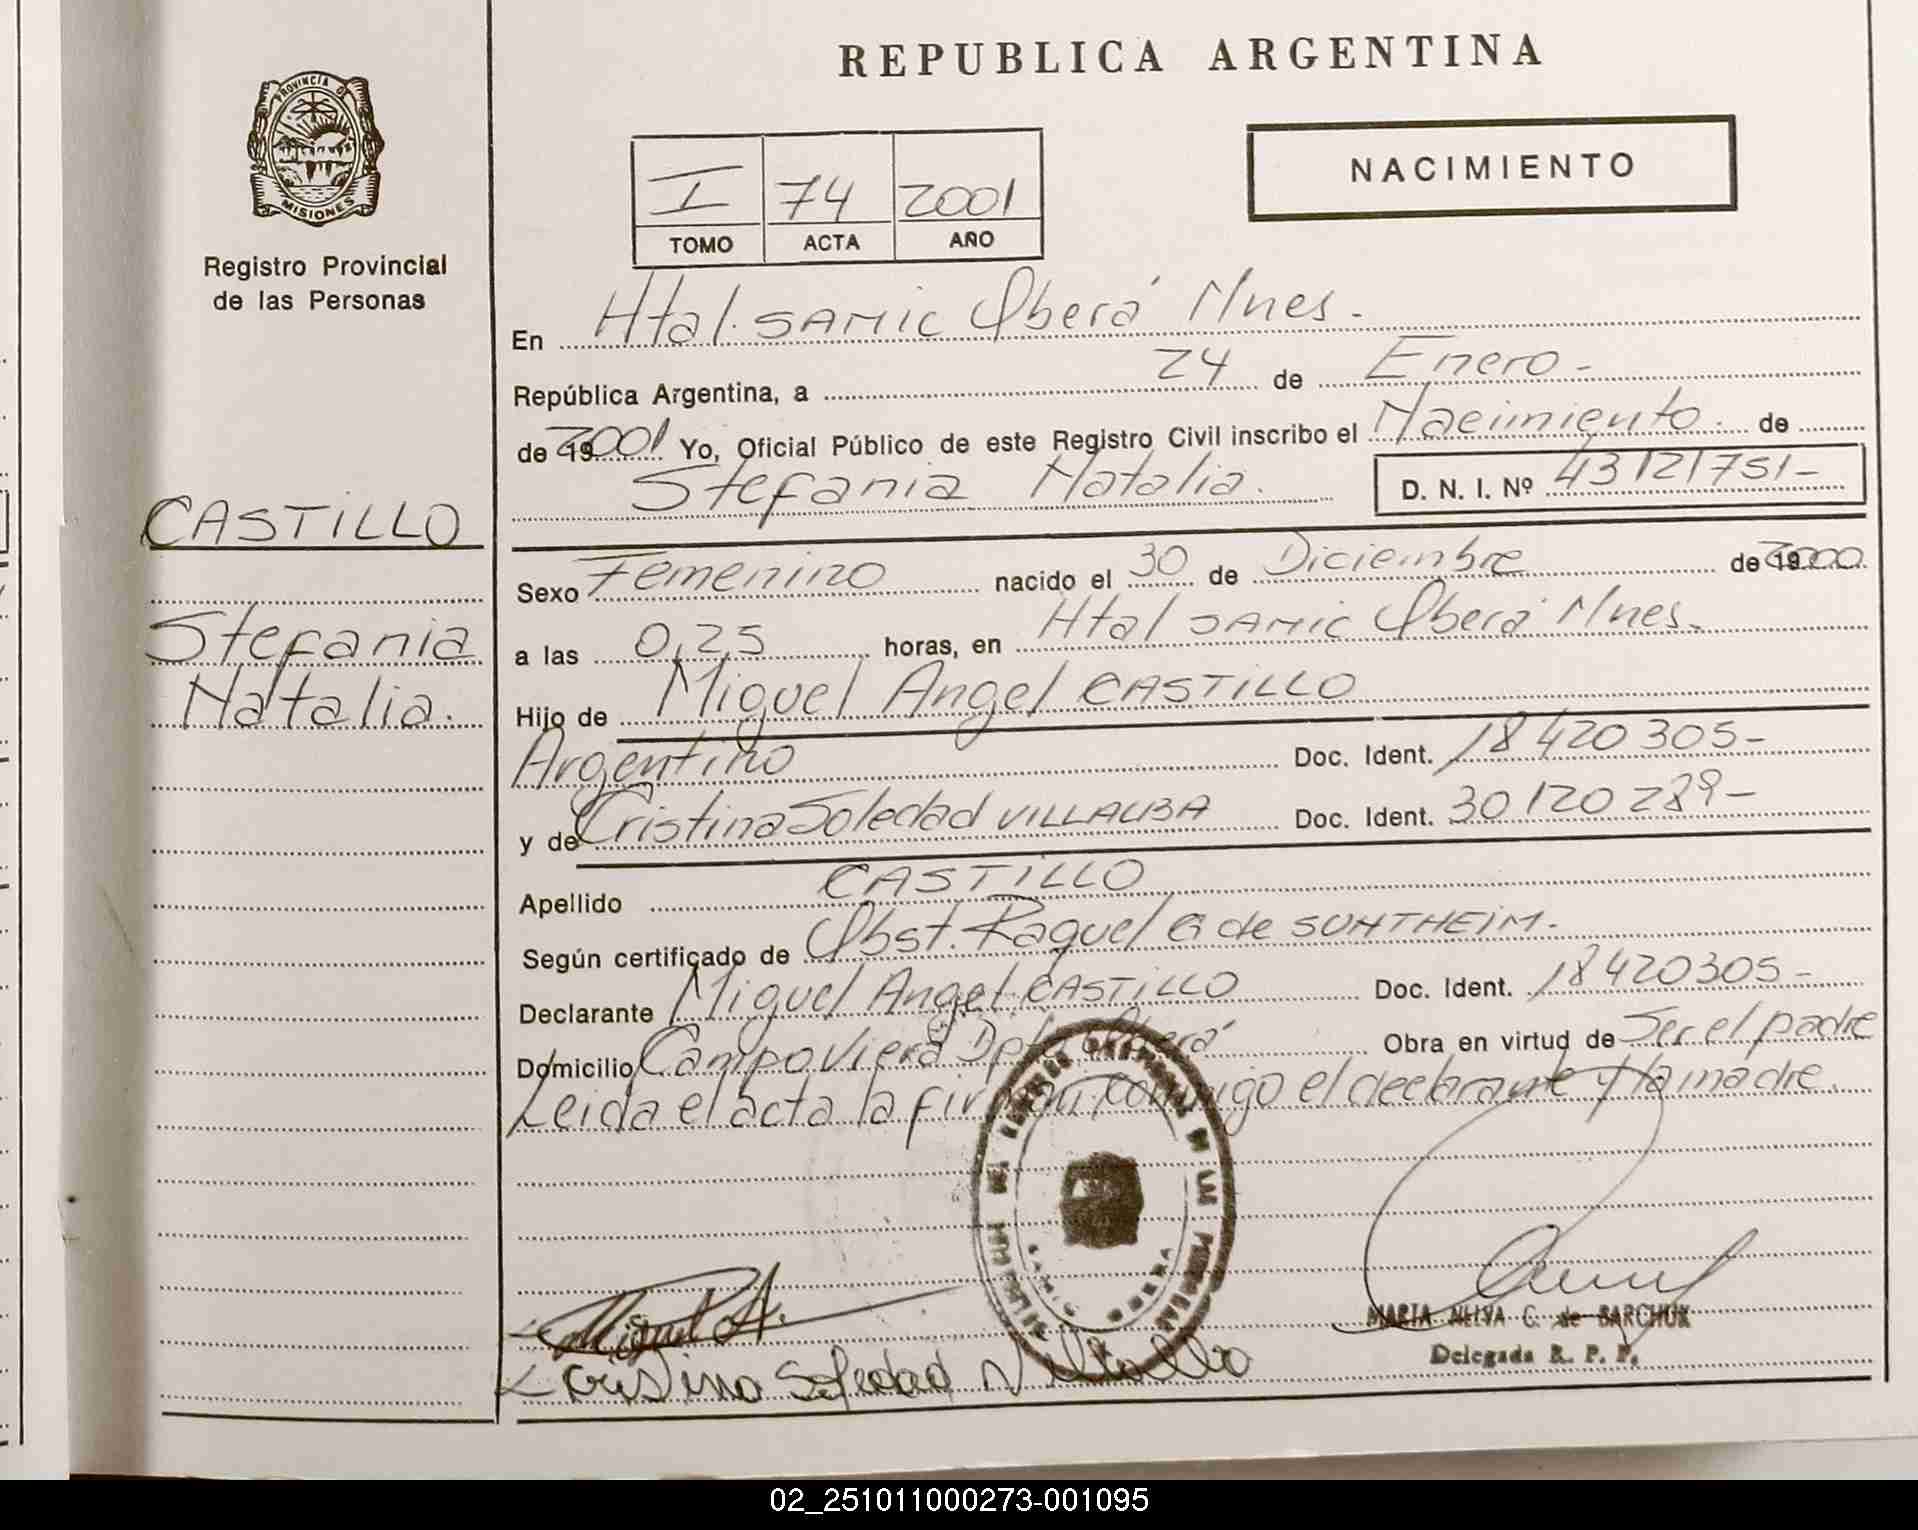 REPUBLICA ARGENTINA
PROVINCIA DE
MISIONES
Registro Provincial
de las Personas
I 74 2001
TOMO ACTA AÑO
NACIMIENTO
En Htal. SAMIC Oberá Mnes.
República Argentina, a 24 de Enero -
de 2001 Yo, Oficial Público de este Registro Civil inscribo el Nacimiento de
Stefania Natalia. D. N. I. Nº 43121751-
CASTiLLO
Stefania
Natalia.
Sexo Femenino nacido el 30 de Diciembre de 2000
a las 0,25 horas, en Htal SAMIC Oberá Mnes.
Hijo de Miguel Angel CASTILLO
Argentino Doc. Ident. 18420305-
y de Cristina Soledad VILLALBA Doc. Ident. 30120289-
Apellido CASTILLO
Según certificado de Obst. Raquel G de SONTHEIM.
Declarante Miguel Angel CASTILLO Doc. Ident. 18420305-
Domicilio Campo Viera Dpto Oberá Obra en virtud de Ser el padre
Leida el acta la firman conmigo el declarante y la madre.
Miguel A.
Cristina Soledad Villalba
MARIA NELVA C. de BARCHUK
Delegada R. P. P.
02_251011000273-001095